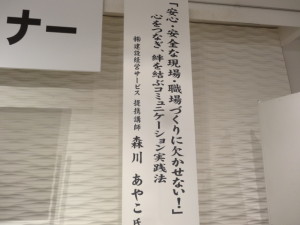 ナー
「安心・安全な現場・職場づくりに欠かせない!」
心をつなぎ、絆を結ぶコミュニケーション実践法
㈱建設経営サービス 提携講師 森川 あやこ 氏